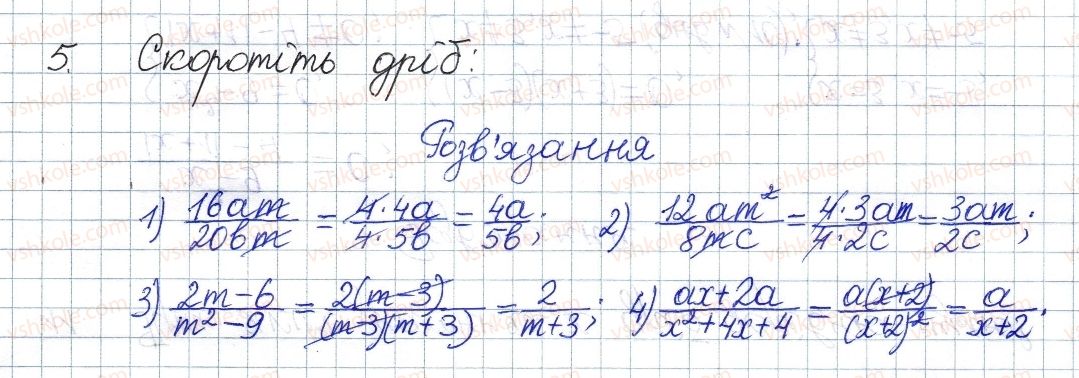 5. Скоротіть дріб:
Розв'язання
1) 16am/20bm = 4·4a/4·5b = 4a/5b; 2) 12am²/8mc = 4·3am/4·2c = 3am/2c;
3) 2m-6/m²-9 = 2(m-3)/(m-3)(m+3) = 2/m+3; 4) ax+2a/x²+4x+4 = a(x+2)/(x+2)² = a/x+2.